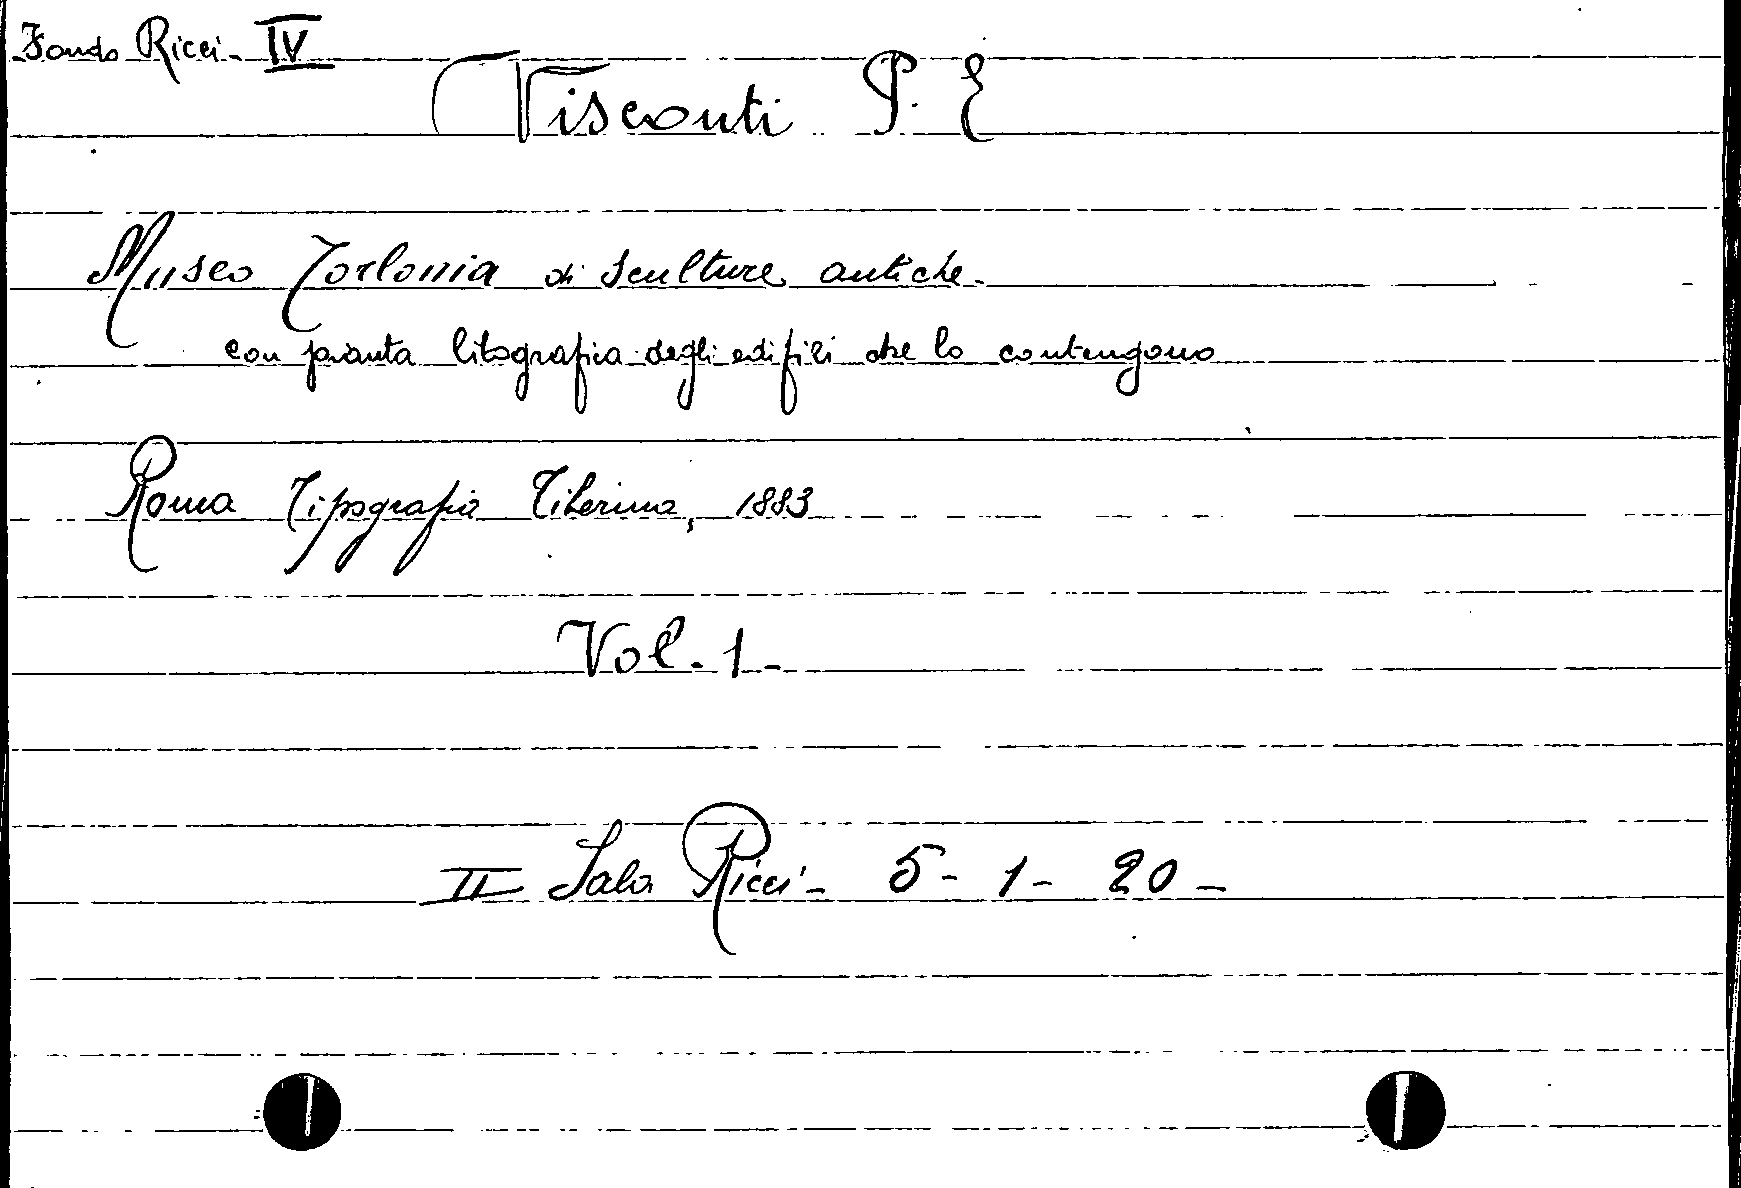 Fondo Ricci - IV
Visconti P. E
Museo Torlonia di sculture antiche -
con pianta litografica degli edifizi che lo contengono
Roma Tipografia Tiberina, 1883
Vol. 1 -
II Sala Ricci - 5 - 1 - 20 -